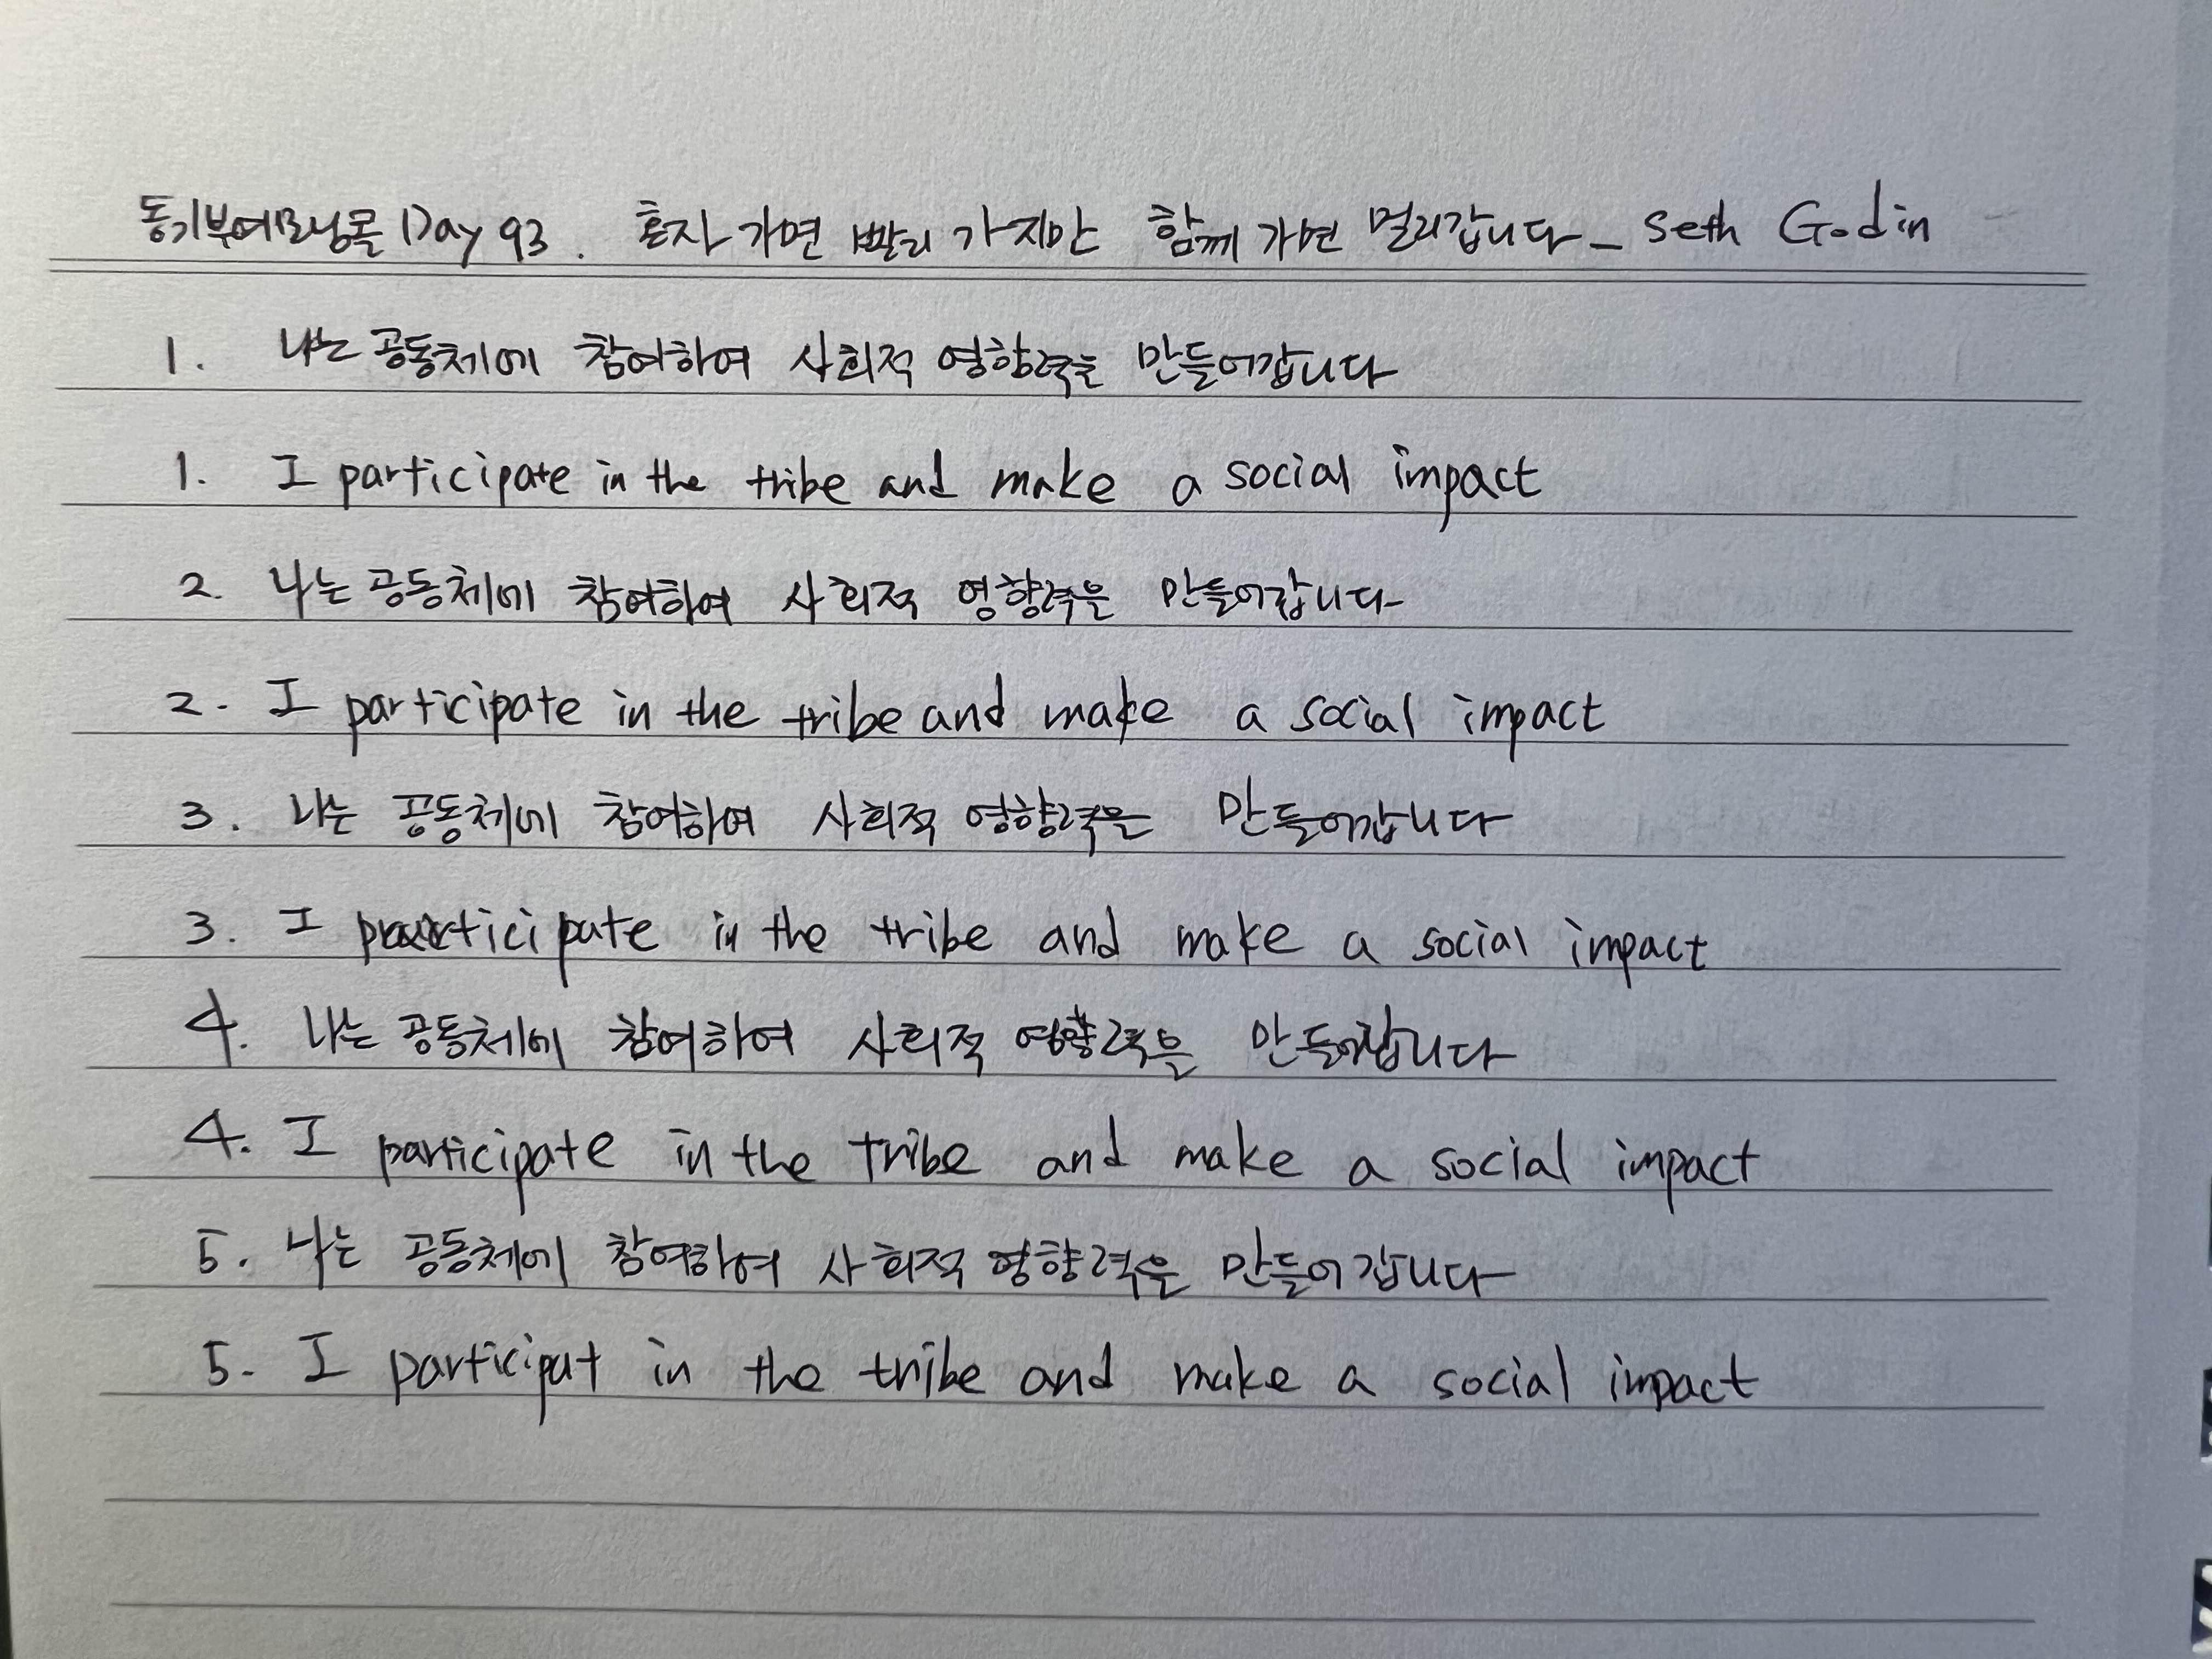 동기부여모닝콜 Day 93. 혼자 가면 빨리 가지만 함께 가면 멀리갑니다_ Seth Godin
1. 나는 공동체에 참여하여 사회적 영향력을 만들어갑니다
1. I participate in the tribe and make a social impact
2. 나는 공동체에 참여하여 사회적 영향력을 만들어갑니다
2. I participate in the tribe and make a social impact
3. 나는 공동체에 참여하여 사회적 영향력을 만들어갑니다
3. I participate in the tribe and make a social impact
4. 나는 공동체에 참여하여 사회적 영향력을 만들어갑니다
4. I participate in the tribe and make a social impact
5. 나는 공동체에 참여하여 사회적 영향력을 만들어갑니다
5. I participat in the tribe and make a social impact